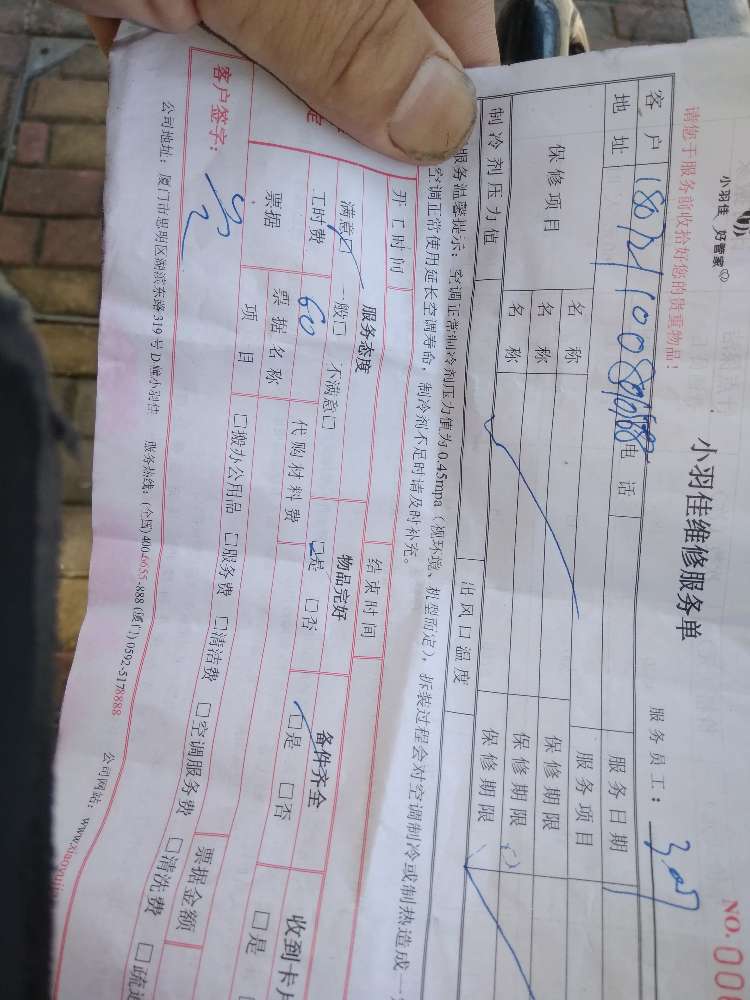 小羽佳 好管家
小羽佳维修服务单
NO.000
请您于服务前收拾好您的贵重物品！
服务员工：
客户 电话 服务日期
地址 服务项目
保修项目 名称 保修期限
名称 保修期限
名称 保修期限
制冷剂压力值 出风口温度
服务温馨提示：空调正常制冷剂压力值为0.45mpa（视环境、机型而定），拆装过程会对空调制冷或制热造成一定
空调正常使用延长空调寿命，制冷剂不足时请及时补充。
开工时间 结束时间
服务态度 物品完好 备件齐全 收到卡片
满意□ 一般□ 不满意□ □是 □否 □是 □否 □是
工时费 60 代购材料费
票据 票据名称 票据金额
项目 □搬办公用品 □服务费 □清洁费 □空调服务费 □清洗费 □疏通
客户签字：
公司地址：厦门市思明区湖滨东路319号D幢小羽佳 服务热线：(全国)4004655-888 (厦门)0592-5178888 公司网站：www.xiaoyujia